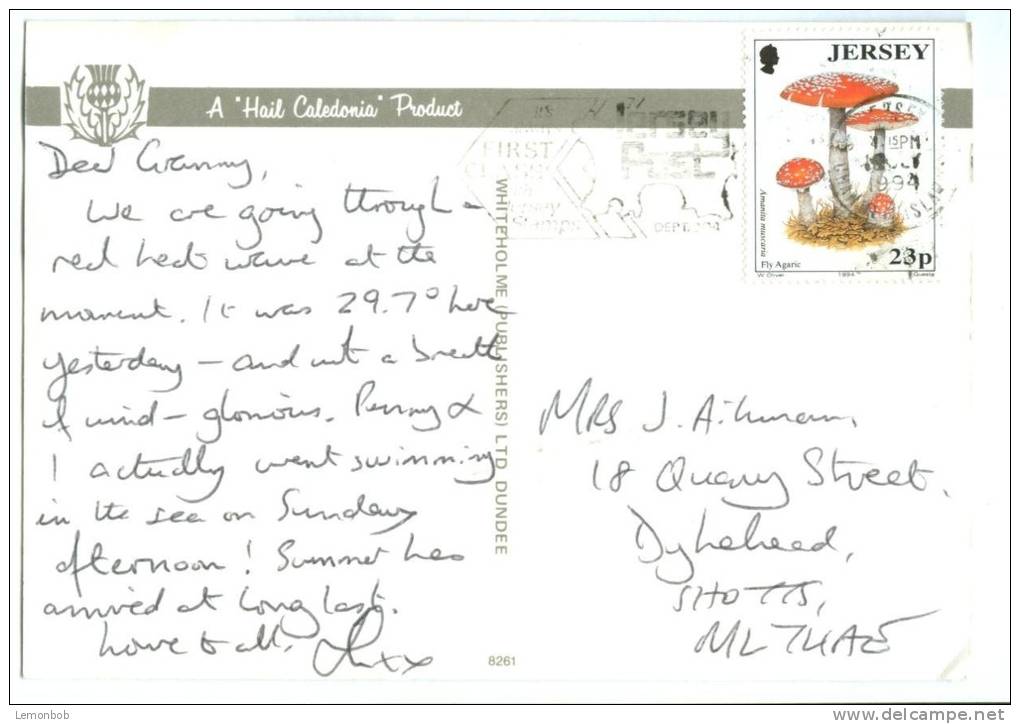 A "Hail Caledonia" Product
Dear Granny,
We are going through a
real heat wave at the
moment. It was 29.7° here
yesterday – and not a breath
of wind – glorious. Penny &
I actually went swimming
in the sea on Sunday
afternoon! Summer has
arrived at long last.
Love to all,
xx
WHITEHOLME (PUBLISHERS) LTD. DUNDEE
8261
FIRST
Jersey
Post
JERSEY
15PM
1994
Amanita muscaria
Fly Agaric
23p
W. Oliver
1994
Questa
MRS J. Aitkman,
18 Quarry Street,
Dykehead,
SHOTTS,
ML7
Lemonbob
delcampe.net